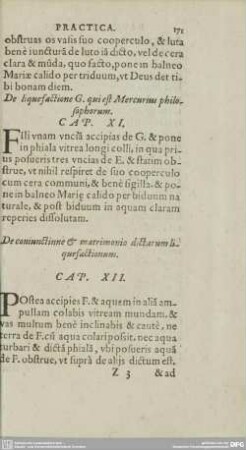 PRACTICA. 171
obstruas os vasis suo cooperculo, & luta
benè iunctura de luto iã dicto, vel de cera
clara & mūda, quo facto, pone in balneo
Mariæ calido per triduum, vt Deus det ti-
bi bonam diem.
De liquefactione G. qui est Mercurius philo-
sophorum.
CAP. XI.
Filli vnam vnciã accipias de G. & pone
in phiala vitrea longi colli, in qua pri-
us posueris tres vncias de E. & statim ob-
strue, vt nihil respiret de suo cooperculo
cum cera communi, & benè sigilla, & po-
ne in balneo Marię calido per biduum na
turale, & post biduum in aquam claram
reperies dissolutam.
De coniunctione & matrimonio dictarum li-
quefactionum.
CAP. XII.
POstea accipies F. & aquem in aliã am-
pullam colabis vitream mundam, &
vas multum benè inclinabis & cautè, ne
terra de F. cū aqua colari possit, nec aqua
turbari & dictã phialã, vbi posueris aquã
de F. obstrue, vt suprà de alijs dictum est.
Z 3 & ad